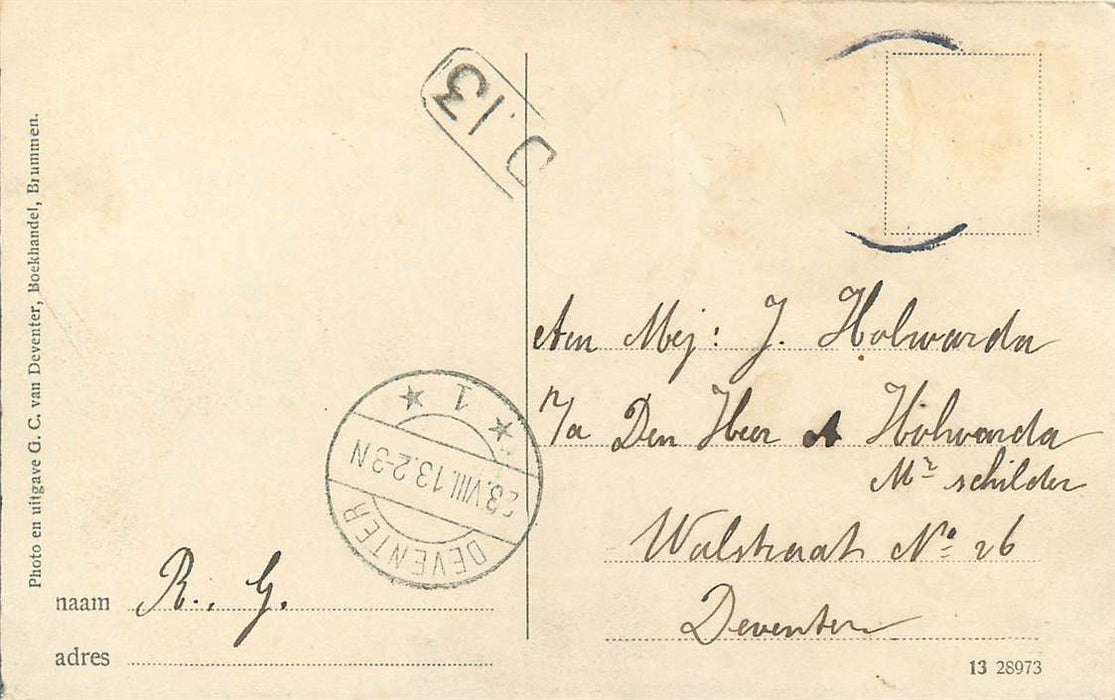 Photo en uitgave G. C. van Deventer, Boekhandel, Brummen.
D.13
DEVENTER
28.VIII.13.2-3N
* 1 *
Aan Mej: J. Holwarda
p/a Den Heer A Holwarda
Mr schilder
Walstraat No 26
Deventer
naam R.. G.
adres
13 28973